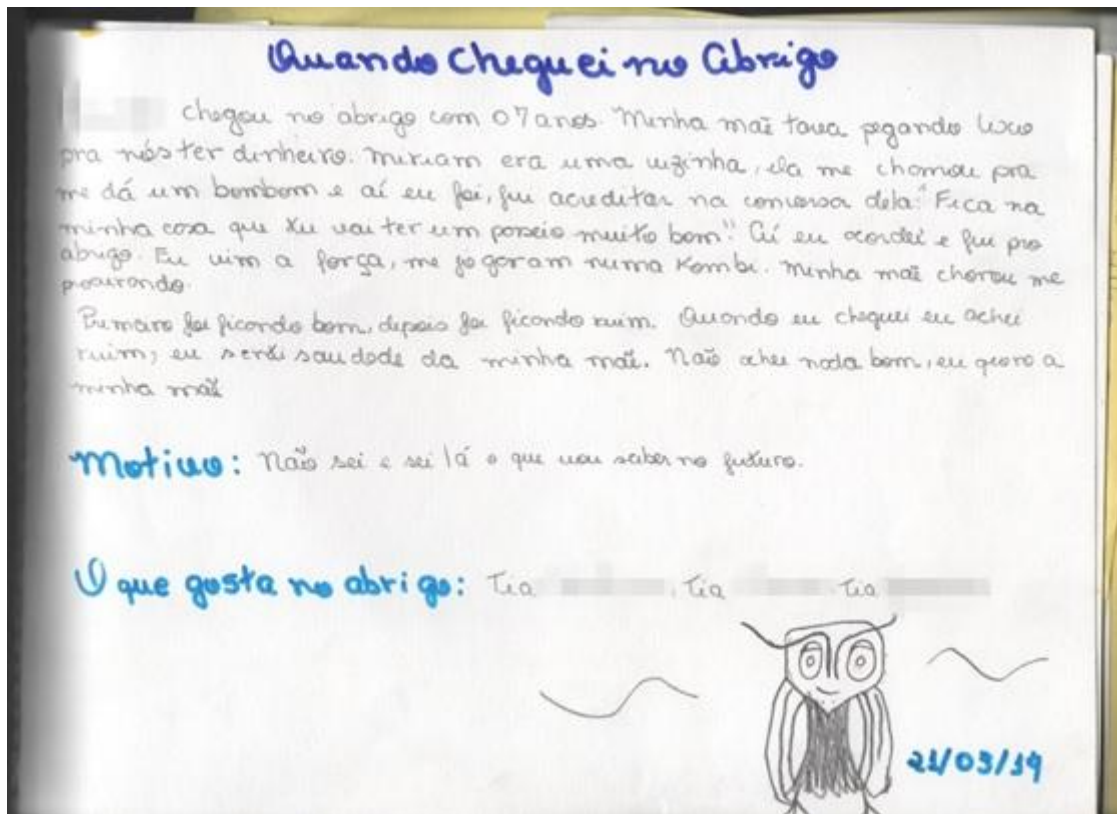 Quando cheguei no Abrigo
chegou no abrigo com 07 anos. Minha mãe tava pegando lixo
pra nós ter dinheiro. Miriam era uma vizinha, ela me chamou pra
me dá um bombom e aí eu foi, fui acreditar na conversa dela: "Fica na
minha casa que Xu vai ter um passeio muito bom". Aí eu acordei e fui pro
abrigo. Eu vim a força, me jogaram numa Kombi. Minha mãe chorou me
procurando.
Primeiro foi ficando bom, depois foi ficando ruim. Quando eu cheguei eu achei
ruim, eu senti saudade da minha mãe. Não achei nada bom, eu quero a
minha mãe
Motivo: Não sei e sei lá o que vou saber no futuro.
O que gosta no abrigo: Tia , Tia , Tia
21/03/19